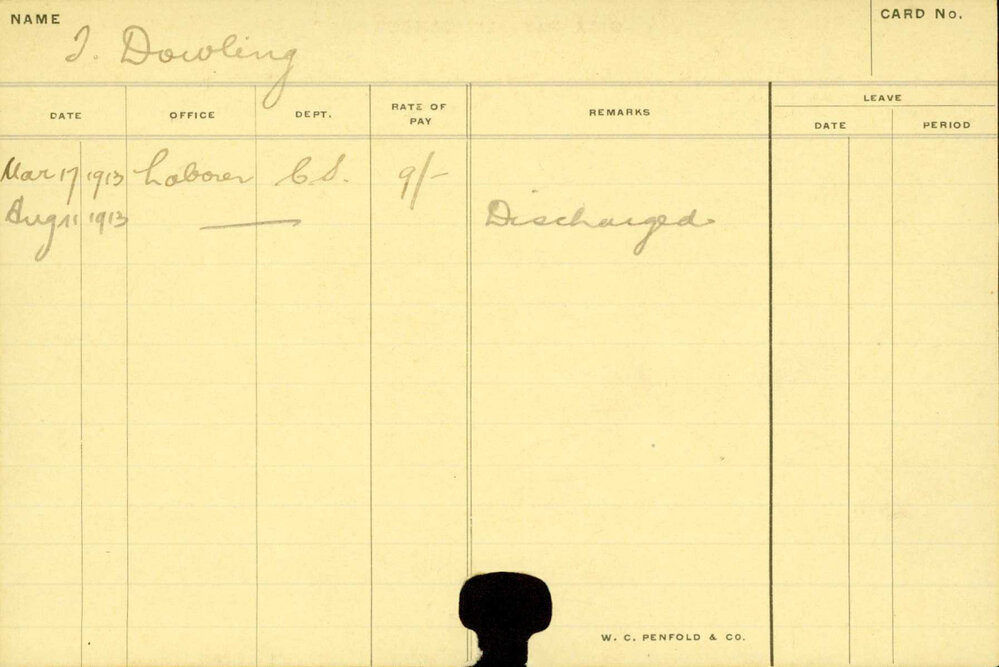 NAME
J. Dowling
CARD No.
DATE OFFICE DEPT. RATE OF PAY REMARKS LEAVE
DATE PERIOD
Mar 17 1913 Laborer C S. 9/-
Aug 11 1913 —— Discharged
W. C. PENFOLD & CO.